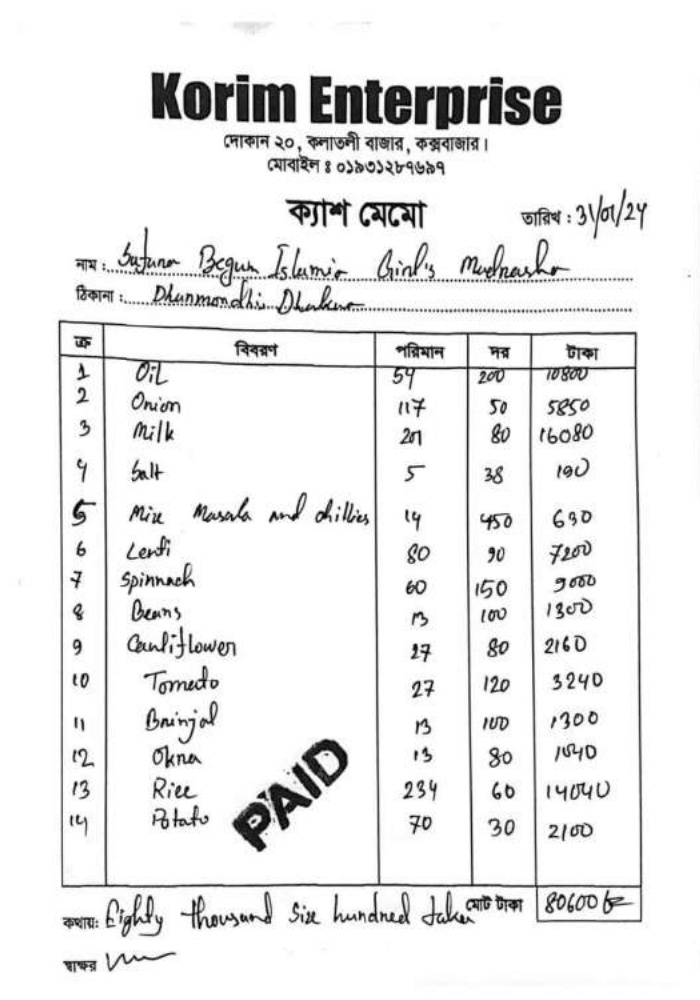 Korim Enterprise
দোকান ২০, কলাতলী বাজার, কক্সবাজার।
মোবাইল ঃ ০১৯৩১২৮৭৬৯৭
ক্যাশ মেমো
তারিখ : 31/01/24
নাম : Begum Islamic Girl's Madrasha
ঠিকানা : Dhanmondhi Dhaka
ক্র বিবরণ পরিমান দর টাকা
1 Oil 54 200 10800
2 Onion 117 50 5850
3 Milk 201 80 16080
4 Salt 5 38 190
5 Mix Masala and chillies 14 450 630
6 Lenti 80 90 7200
7 Spinnach 60 150 9000
8 Beans 13 100 1300
9 Cauliflower 27 80 2160
10 Tomato 27 120 3240
11 Brinjal 13 100 1300
12 Okra 13 80 1040
13 Rice 234 60 14040
14 Potato 70 30 2100
PAID
কথায়: Eighty thousand Six hundred taka মোট টাকা 80600
স্বাক্ষর